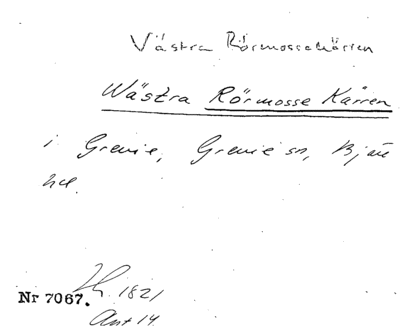 Västra Rörmossekärren
Wästra Rörmosse Kärren
i Grevie, Grevie sn, Bjäre
hd.
Lh. 1821
Nr 7067.
Akt 14.